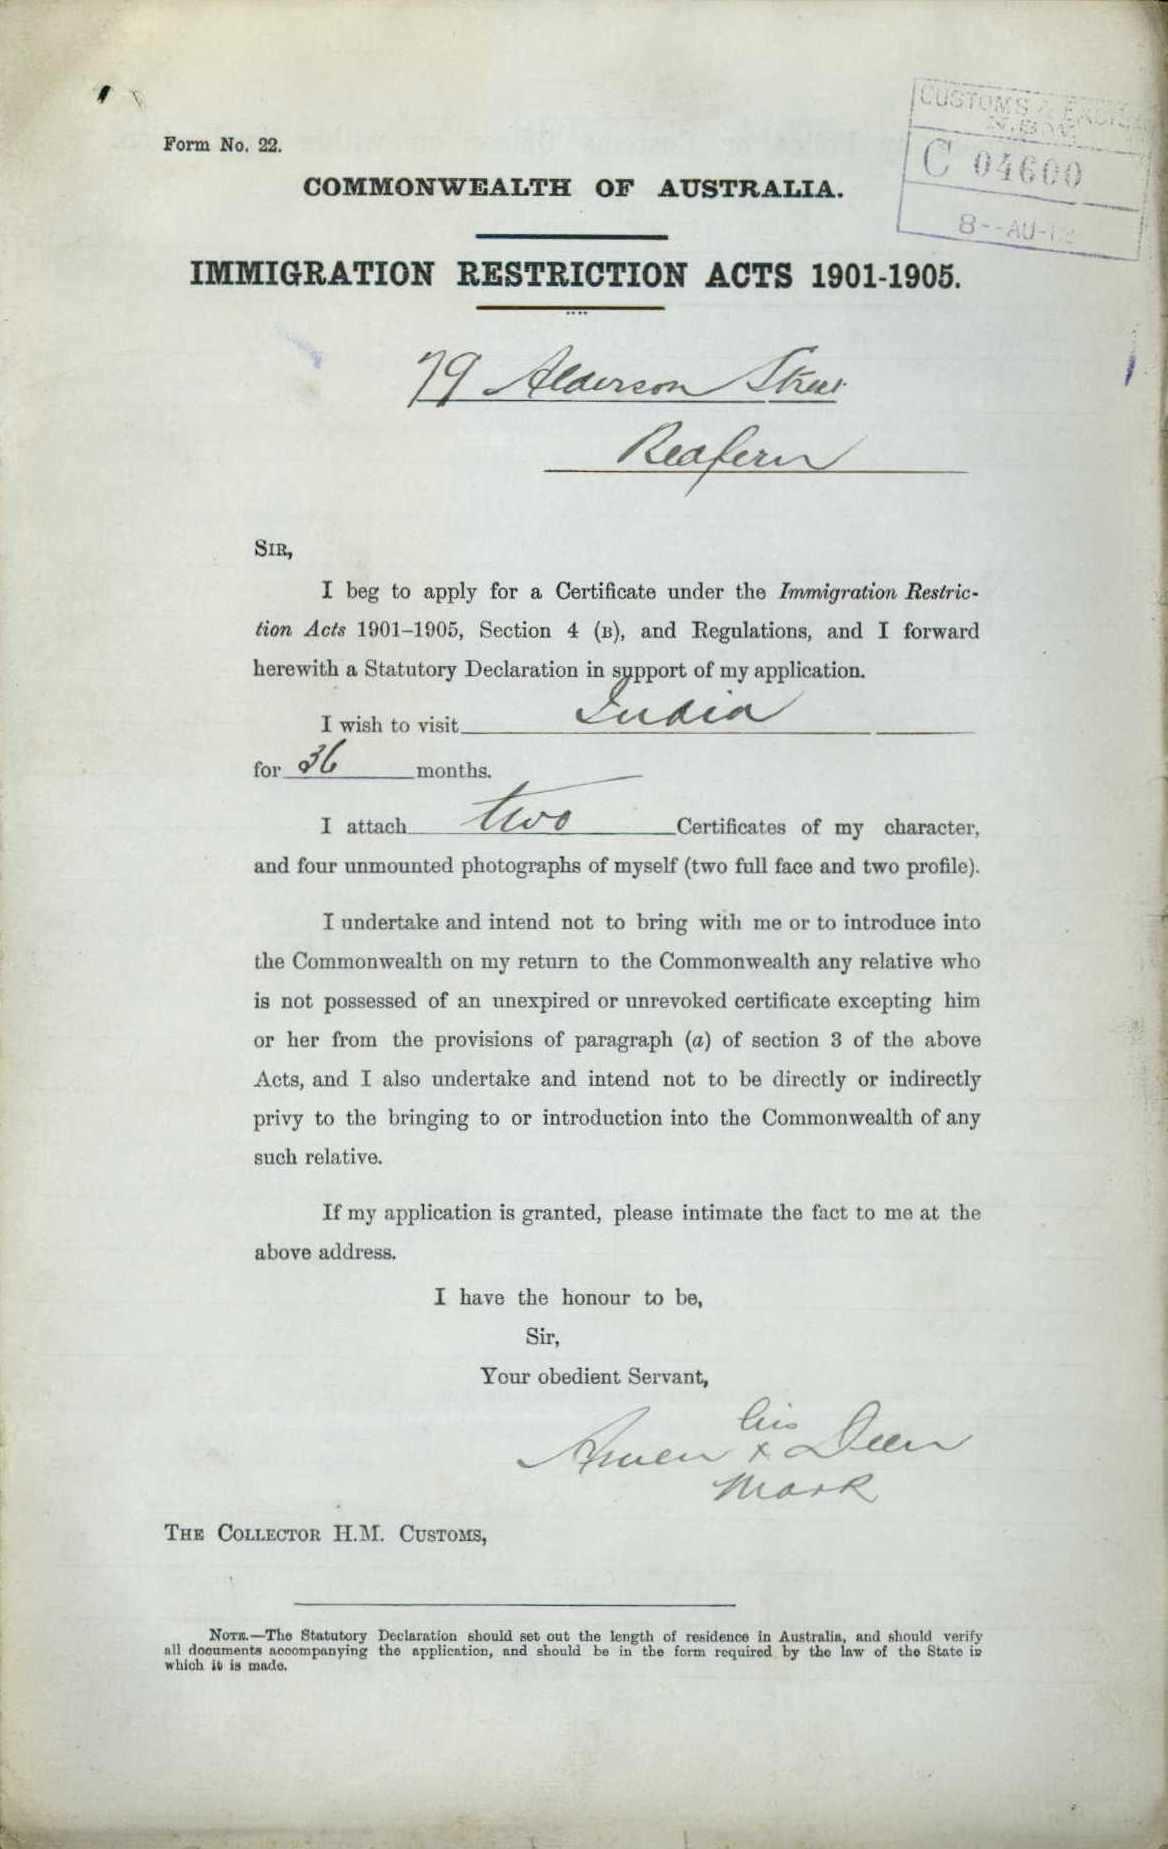 CUSTOMS & EXCISE
N.S.W.
C 04600
8--AU-12
Form No. 22.
COMMONWEALTH OF AUSTRALIA.
IMMIGRATION RESTRICTION ACTS 1901-1905.
79 Alderson Street
Redfern
SIR,
I beg to apply for a Certificate under the Immigration Restric-
tion Acts 1901-1905, Section 4 (B), and Regulations, and I forward
herewith a Statutory Declaration in support of my application.
I wish to visit India
for 36 months.
I attach two Certificates of my character,
and four unmounted photographs of myself (two full face and two profile).
I undertake and intend not to bring with me or to introduce into
the Commonwealth on my return to the Commonwealth any relative who
is not possessed of an unexpired or unrevoked certificate excepting him
or her from the provisions of paragraph (a) of section 3 of the above
Acts, and I also undertake and intend not to be directly or indirectly
privy to the bringing to or introduction into the Commonwealth of any
such relative.
If my application is granted, please intimate the fact to me at the
above address.
I have the honour to be,
Sir,
Your obedient Servant,
his
Ameen x Deen
Mark
THE COLLECTOR H.M. CUSTOMS,
NOTE.—The Statutory Declaration should set out the length of residence in Australia, and should verify
all documents accompanying the application, and should be in the form required by the law of the State in
which it is made.